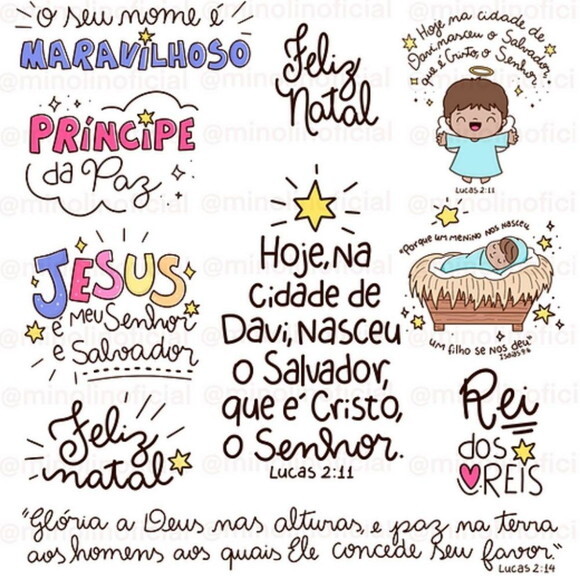 O Seu nome é
MARAVILHOSO
PRÍNCIPE
da Paz
JESUS
é meu Senhor
e Salvador
Feliz
natal
Feliz
Natal
Hoje, na
cidade de
Davi, nasceu
o Salvador,
que é Cristo,
o Senhor.
Lucas 2:11
Hoje na cidade de
Davi, nasceu o Salvador
que é Cristo, o Senhor
Lucas 2:11
"Porque um menino nos nasceu
um filho se nos deu"
Isaías 9:6
Rei
dos
REIS
"Glória a Deus nas alturas, e paz na terra
aos homens aos quais Ele concede seu favor."
Lucas 2:14
@minolinoficial